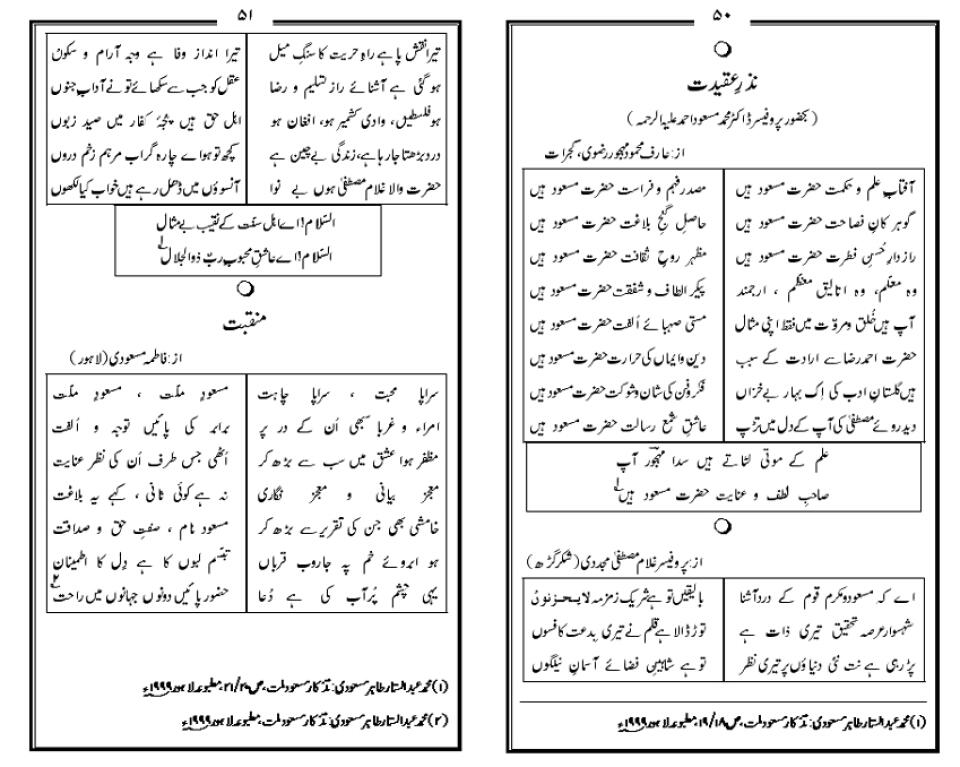 ۵۰
نذرِ عقیدت
(بحضور پروفیسر ڈاکٹر محمد مسعود احمد علیہ الرحمہ)
از: عارف محمود مہجور رضوی، گجرات
آفتابِ علم و حکمت حضرت مسعود ہیں مصدرِ فہم و فراست حضرت مسعود ہیں
گوہر کانِ فصاحت حضرت مسعود ہیں حاصلِ گنجِ بلاغت حضرت مسعود ہیں
رازدارِ حُسنِ فطرت حضرت مسعود ہیں مظہر روحِ ثقافت حضرت مسعود ہیں
وہ معلّم، وہ اتالیق معظم ، ارجمند پیکرِ الطاف و شفقت حضرت مسعود ہیں
آپ ہیں خُلق و مروّت میں فقط اپنی مثال مستی صہبائے اُلفت حضرت مسعود ہیں
حضرت احمد رضا سے ارادت کے سبب دین و ایماں کی حرارت حضرت مسعود ہیں
ہیں گلستانِ ادب کی اِک بہارِ بے خزاں فکر و فن کی شان و شوکت حضرت مسعود ہیں
دید روئے مصطفیٰ کی آپ کے دل میں تڑپ عاشقِ شمع رسالت حضرت مسعود ہیں
علم کے موتی لٹاتے ہیں سدا مہجور آپ
صاحبِ لطف و عنایت حضرت مسعود ہیں ۱
از: پروفیسر غلام مصطفیٰ مجددی (شکر گڑھ)
اے کہ مسعود و مکرم قوم کے درد آشنا بالیقیں تو ہے شریک زمزمہ لایحزنوں
شہسوار عرصہ تحقیق تیری ذات ہے توڑ ڈالا ہے قلم نے تیری بدعت کا فسوں
پڑ رہی ہے نت نئی دنیاؤں پر تیری نظر تو ہے شاہینِ فضائے آسمانِ نیلگوں
(۱) محمد عبدالستار طاہر مسعودی: تذکار مسعود ملت، ص ۱۸/۱۹، مطبوعہ لاہور ۱۹۹۹ء
۵۱
تیرا نقش پا ہے راہِ حریت کا سنگِ میل تیرا اندازِ وفا ہے وجہ آرام و سکوں
ہو گئی ہے آشنائے رازِ تسلیم و رضا عقل کو جب سے سکھائے تو نے آدابِ جنوں
ہو فلسطیں، وادی کشمیر ہو، افغان ہو اہل حق ہیں پنجۂ کفار میں صید زبوں
درد بڑھتا جا رہا ہے، زندگی بے چین ہے کچھ تو ہو اے چارہ گر اب مرہم زخم دروں
حضرت والا غلام مصطفیٰ ہوں بے نوا آنسوؤں میں ڈھل رہے ہیں خواب کیا لکھوں
السّلام! اے اہل سنّت کے نقیب بے مثال
السّلام! اے عاشقِ محبوب ربّ ذوالجلال ۱
منقبت
از: فاطمہ مسعودی (لاہور)
سراپا محبت ، سراپا چاہت مسعودِ ملّت ، مسعودِ ملّت
امراء و غربا سبھی اُن کے در پر برابر کی پائیں توجہ و اُلفت
مظفر ہوا عشق میں سب سے بڑھ کر اُٹھی جس طرف اُن کی نظر عنایت
معجز بیانی و معجز نگاری نہ ہے کوئی ثانی ، کہے یہ بلاغت
خامشی بھی جن کی تقریر سے بڑھ کر مسعود نام ، صفتِ حق و صداقت
ہو ابروئے خم پہ جاروب قرباں تبسّم لبوں کا ہے دِل کا اطمینان
یہی چشم پُرآب کی ہے دُعا حضور پائیں دونوں جہانوں میں راحت ۲
(۱) محمد عبدالستار طاہر مسعودی: تذکار مسعود ملت، ص ۲۰/۲۱، مطبوعہ لاہور ۱۹۹۹ء
(۲) محمد عبدالستار طاہر مسعودی: تذکار مسعود ملت، مطبوعہ لاہور ۱۹۹۹ء